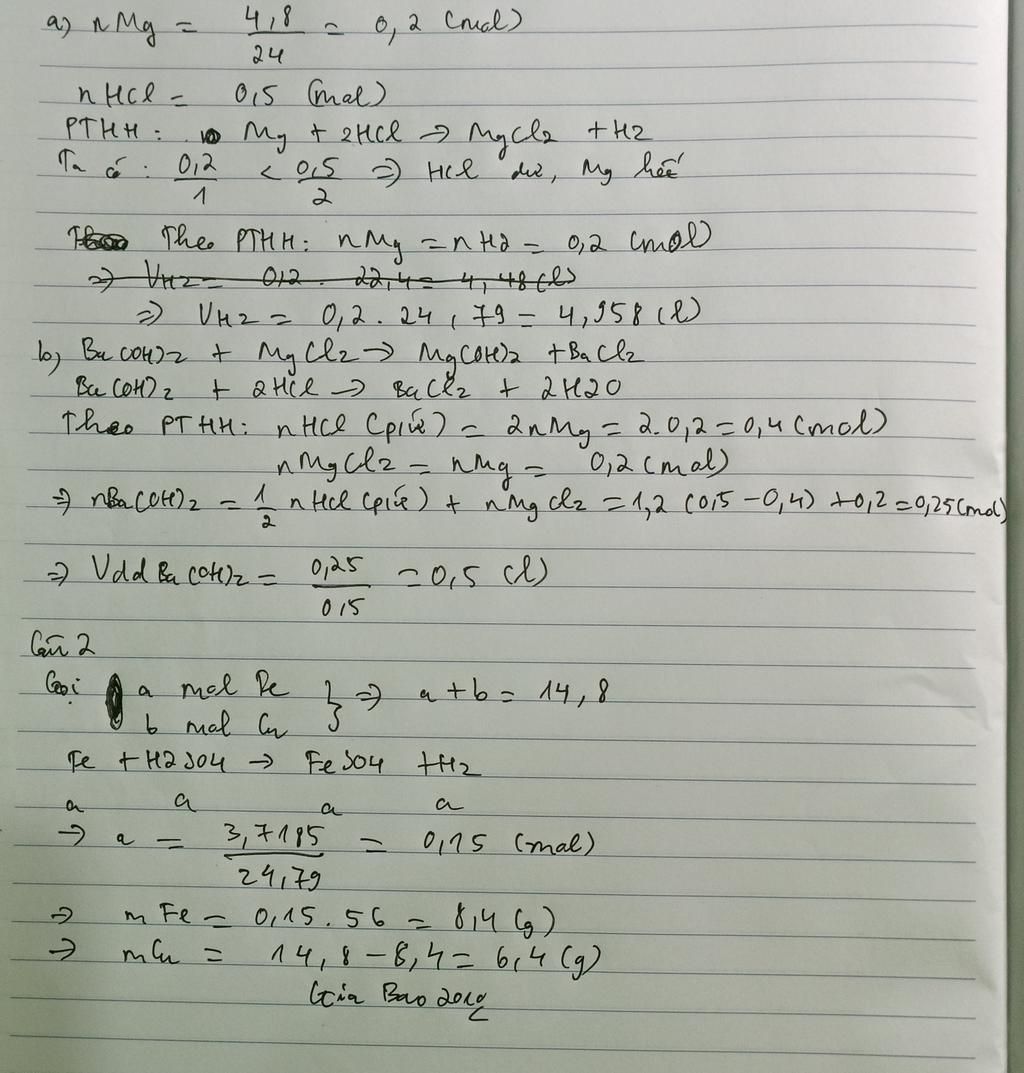 a) nMg = 4,8/24 = 0,2 (mol)
nHCl = 0,5 (mol)
PTHH: Mg + 2HCl → MgCl2 + H2
Ta có: 0,2/1 < 0,5/2 => HCl dư, Mg hết
Theo PTHH: nMg = nH2 = 0,2 (mol)
=> VH2 = 0,2 . 22,4 = 4,48 (l)
=> VH2 = 0,2 . 24,79 = 4,958 (l)
b) Ba(OH)2 + MgCl2 → Mg(OH)2 + BaCl2
Ba(OH)2 + 2HCl → BaCl2 + 2H2O
Theo PTHH: nHCl (pứ) = 2nMg = 2.0,2 = 0,4 (mol)
nMgCl2 = nMg = 0,2 (mol)
=> nBa(OH)2 = 1/2 nHCl (pứ) + nMgCl2 = 1,2 (0,5 - 0,4) + 0,2 = 0,25 (mol)
=> Vdd Ba(OH)2 = 0,25/0,5 = 0,5 (l)
Câu 2
Gọi a mol Fe } => a + b = 14,8
b mol Cu
Fe + H2SO4 → FeSO4 + H2
a a a a
→ a = 3,7185/24,79 = 0,15 (mol)
=> mFe = 0,15.56 = 8,4 (g)
=> mCu = 14,8 - 8,4 = 6,4 (g)
Gia Bao